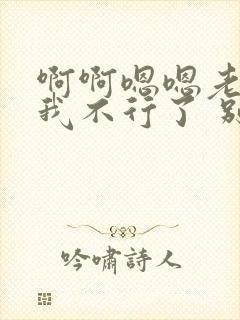 啊啊嗯嗯老
我不行了 别
吟嘯詩人